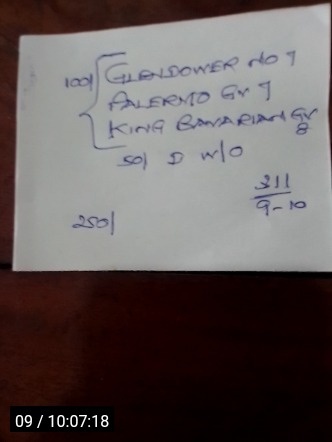 100/ GLENDOWER NO 7
PALERMO GV 9
KING BAVARIAN GV 8
50/ D W/O
311
9-10
250/
09 / 10:07:18